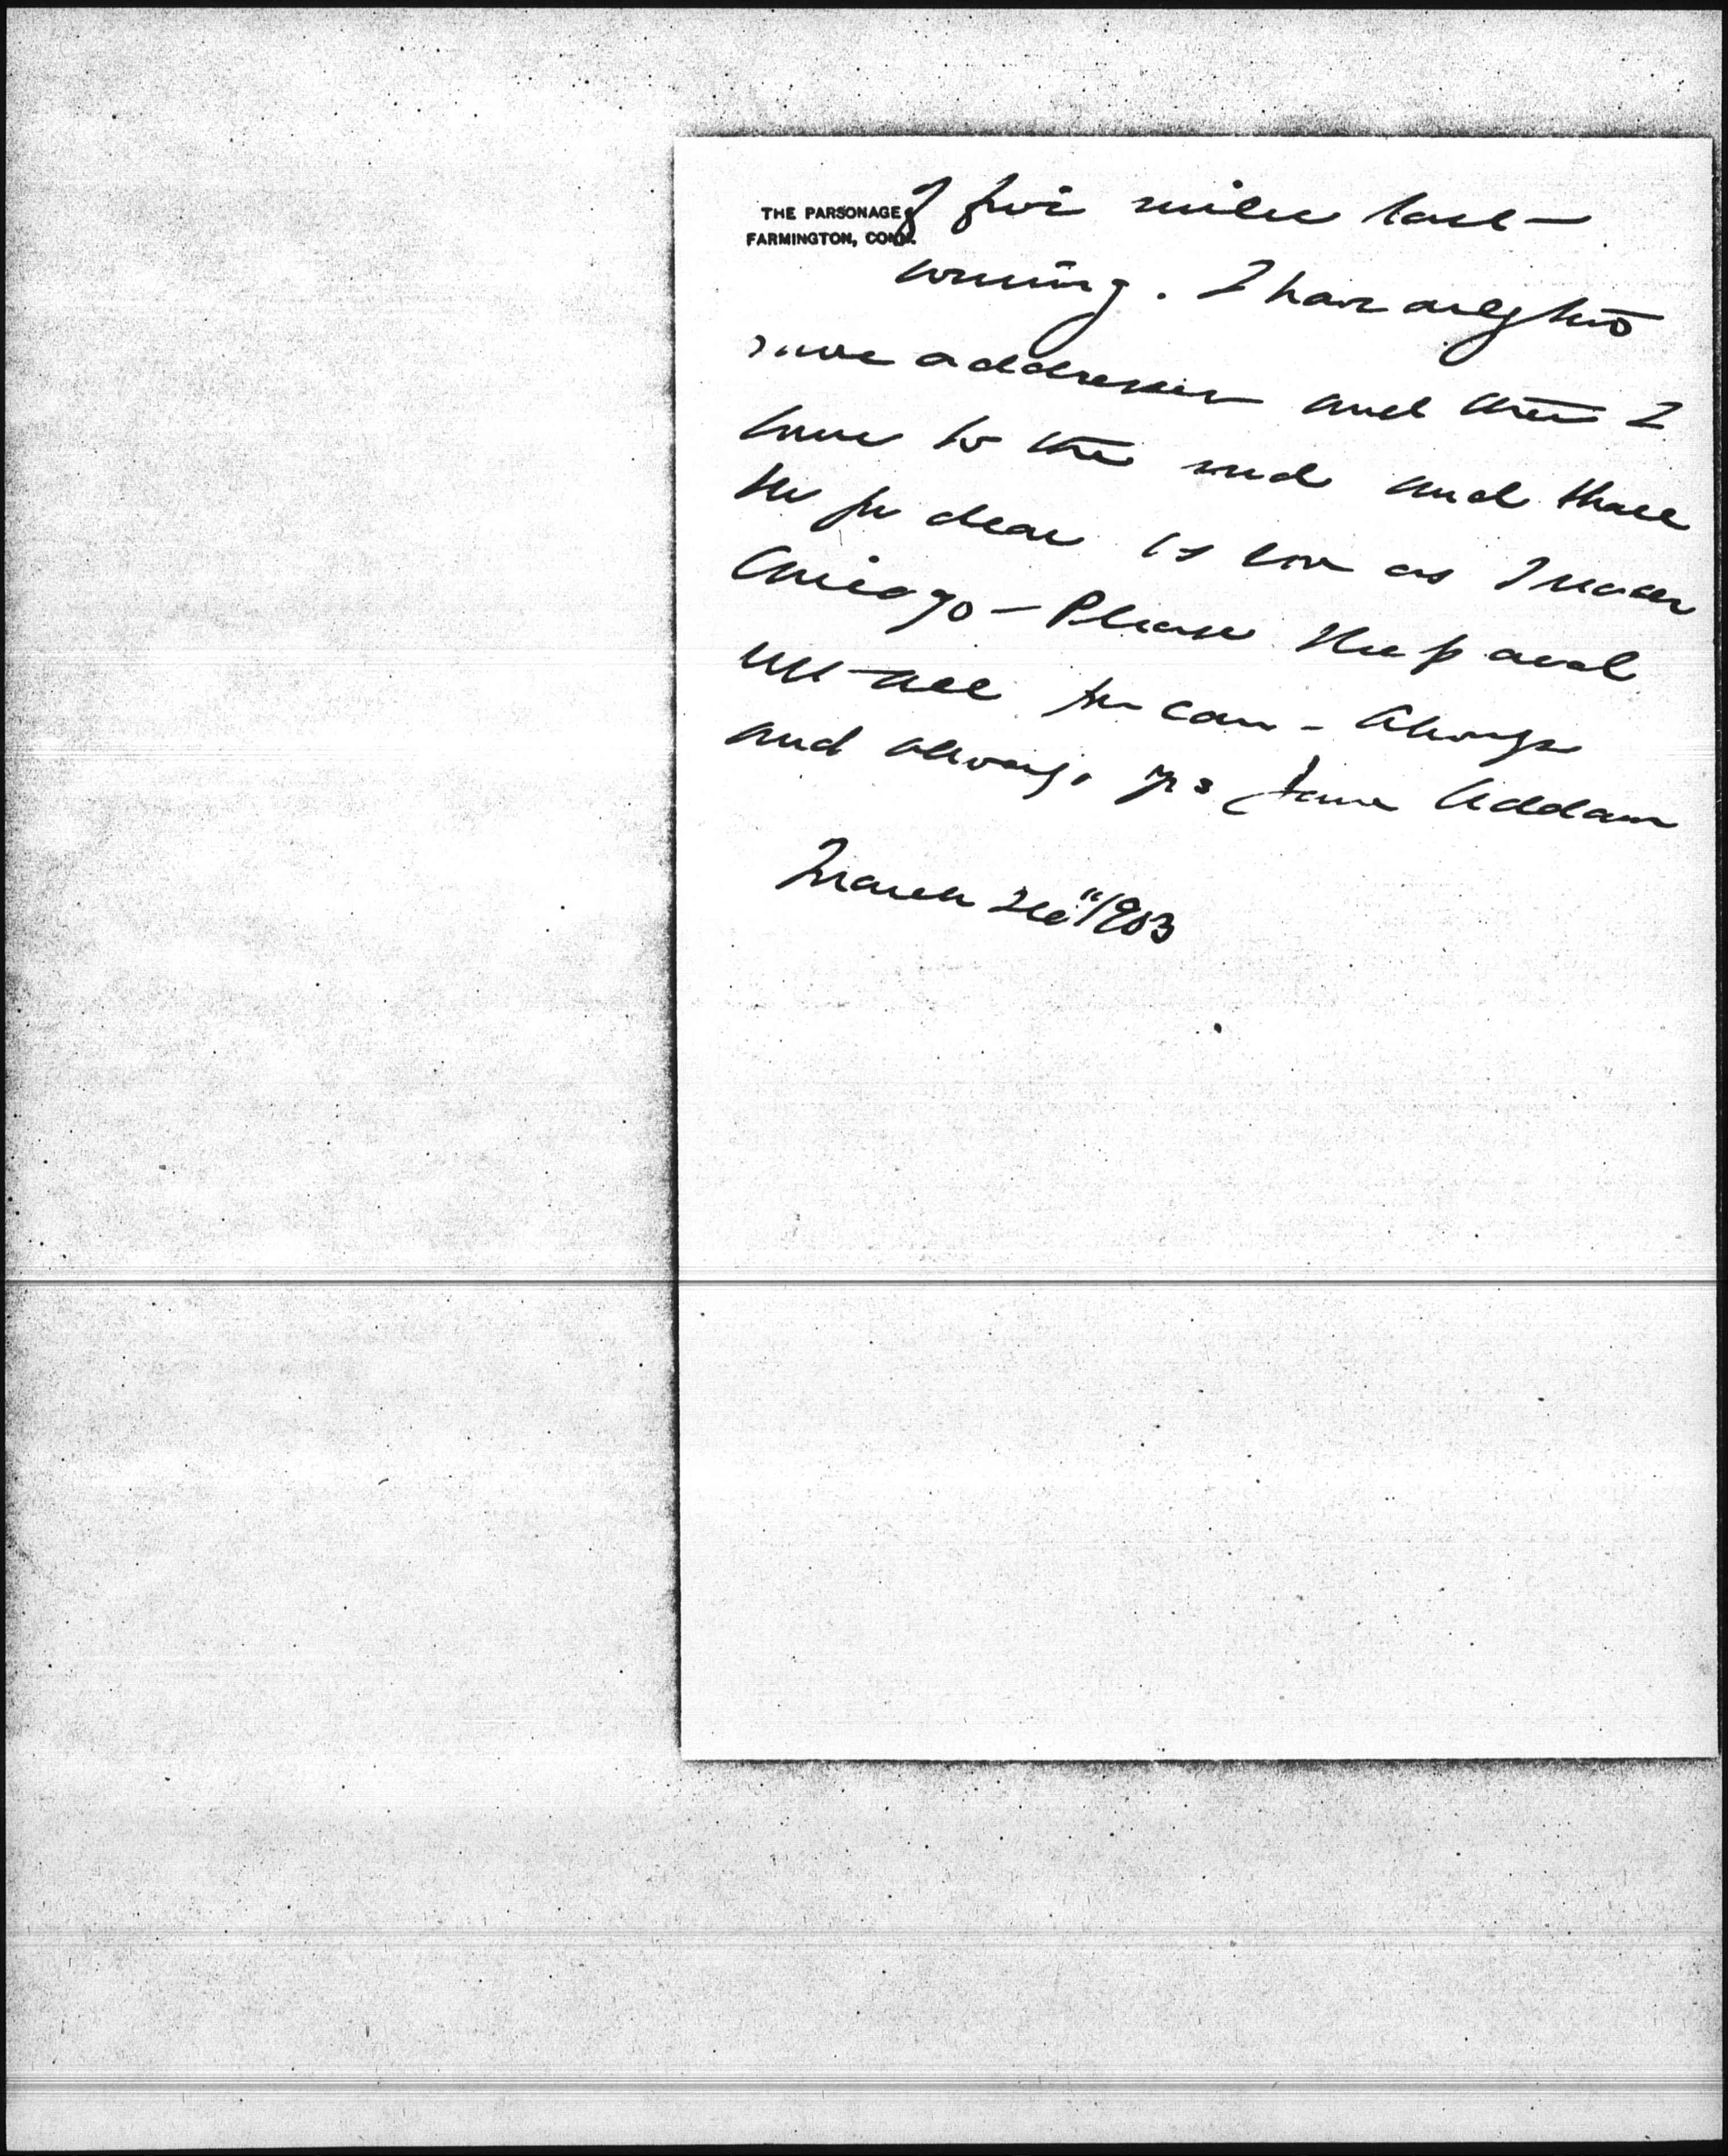 THE PARSONAGE
FARMINGTON, CONN.
of five miles last
evening. I have only two
more addresses and then I
come to the end and shall
see you dear as soon as I reach
Chicago — Please sleep and
rest all you can — Always
and always yrs Jane Addams
March 26" 1903